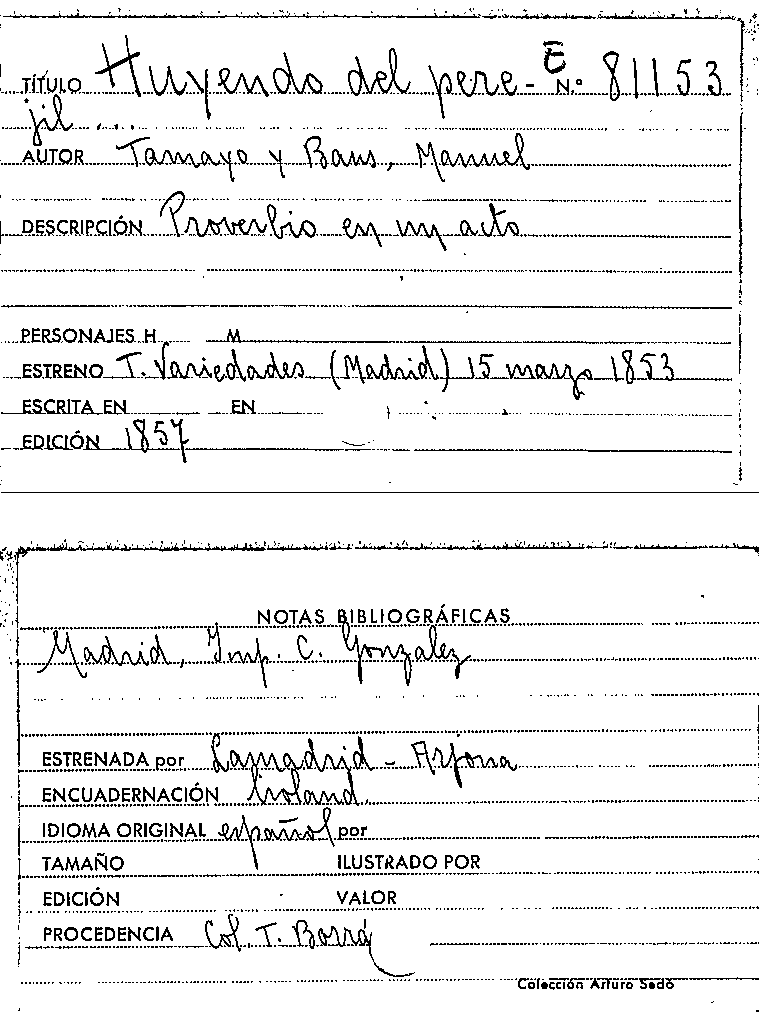 TÍTULO Huyendo del pere- E N.º 81153
jil ...
AUTOR Tamayo y Baus, Manuel
DESCRIPCIÓN Proverbio en un acto
PERSONAJES H M
ESTRENO T. Variedades (Madrid) 15 marzo 1853
ESCRITA EN EN
EDICIÓN 1857
NOTAS BIBLIOGRÁFICAS
Madrid, Imp. C. Gonzalez
ESTRENADA por Lamadrid - Arjona
ENCUADERNACIÓN
IDIOMA ORIGINAL español por
TAMAÑO ILUSTRADO POR
EDICIÓN VALOR
PROCEDENCIA Col. T. Borrá
Colección Arturo Sedó